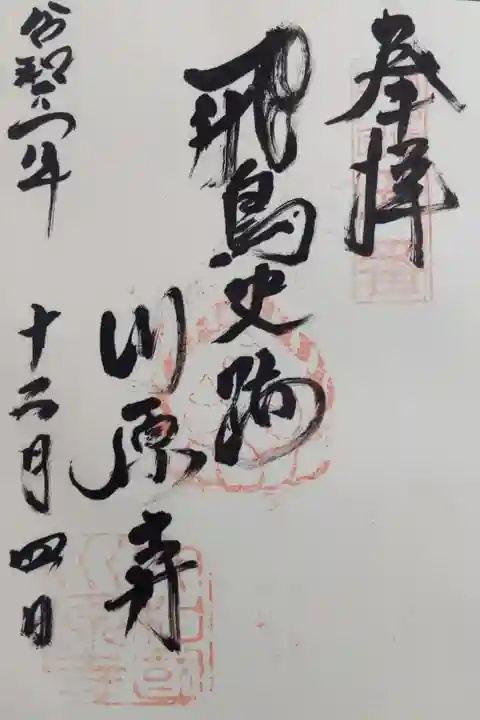 奉拝
飛鳥史跡
川原寺
令和六年
十二月四日